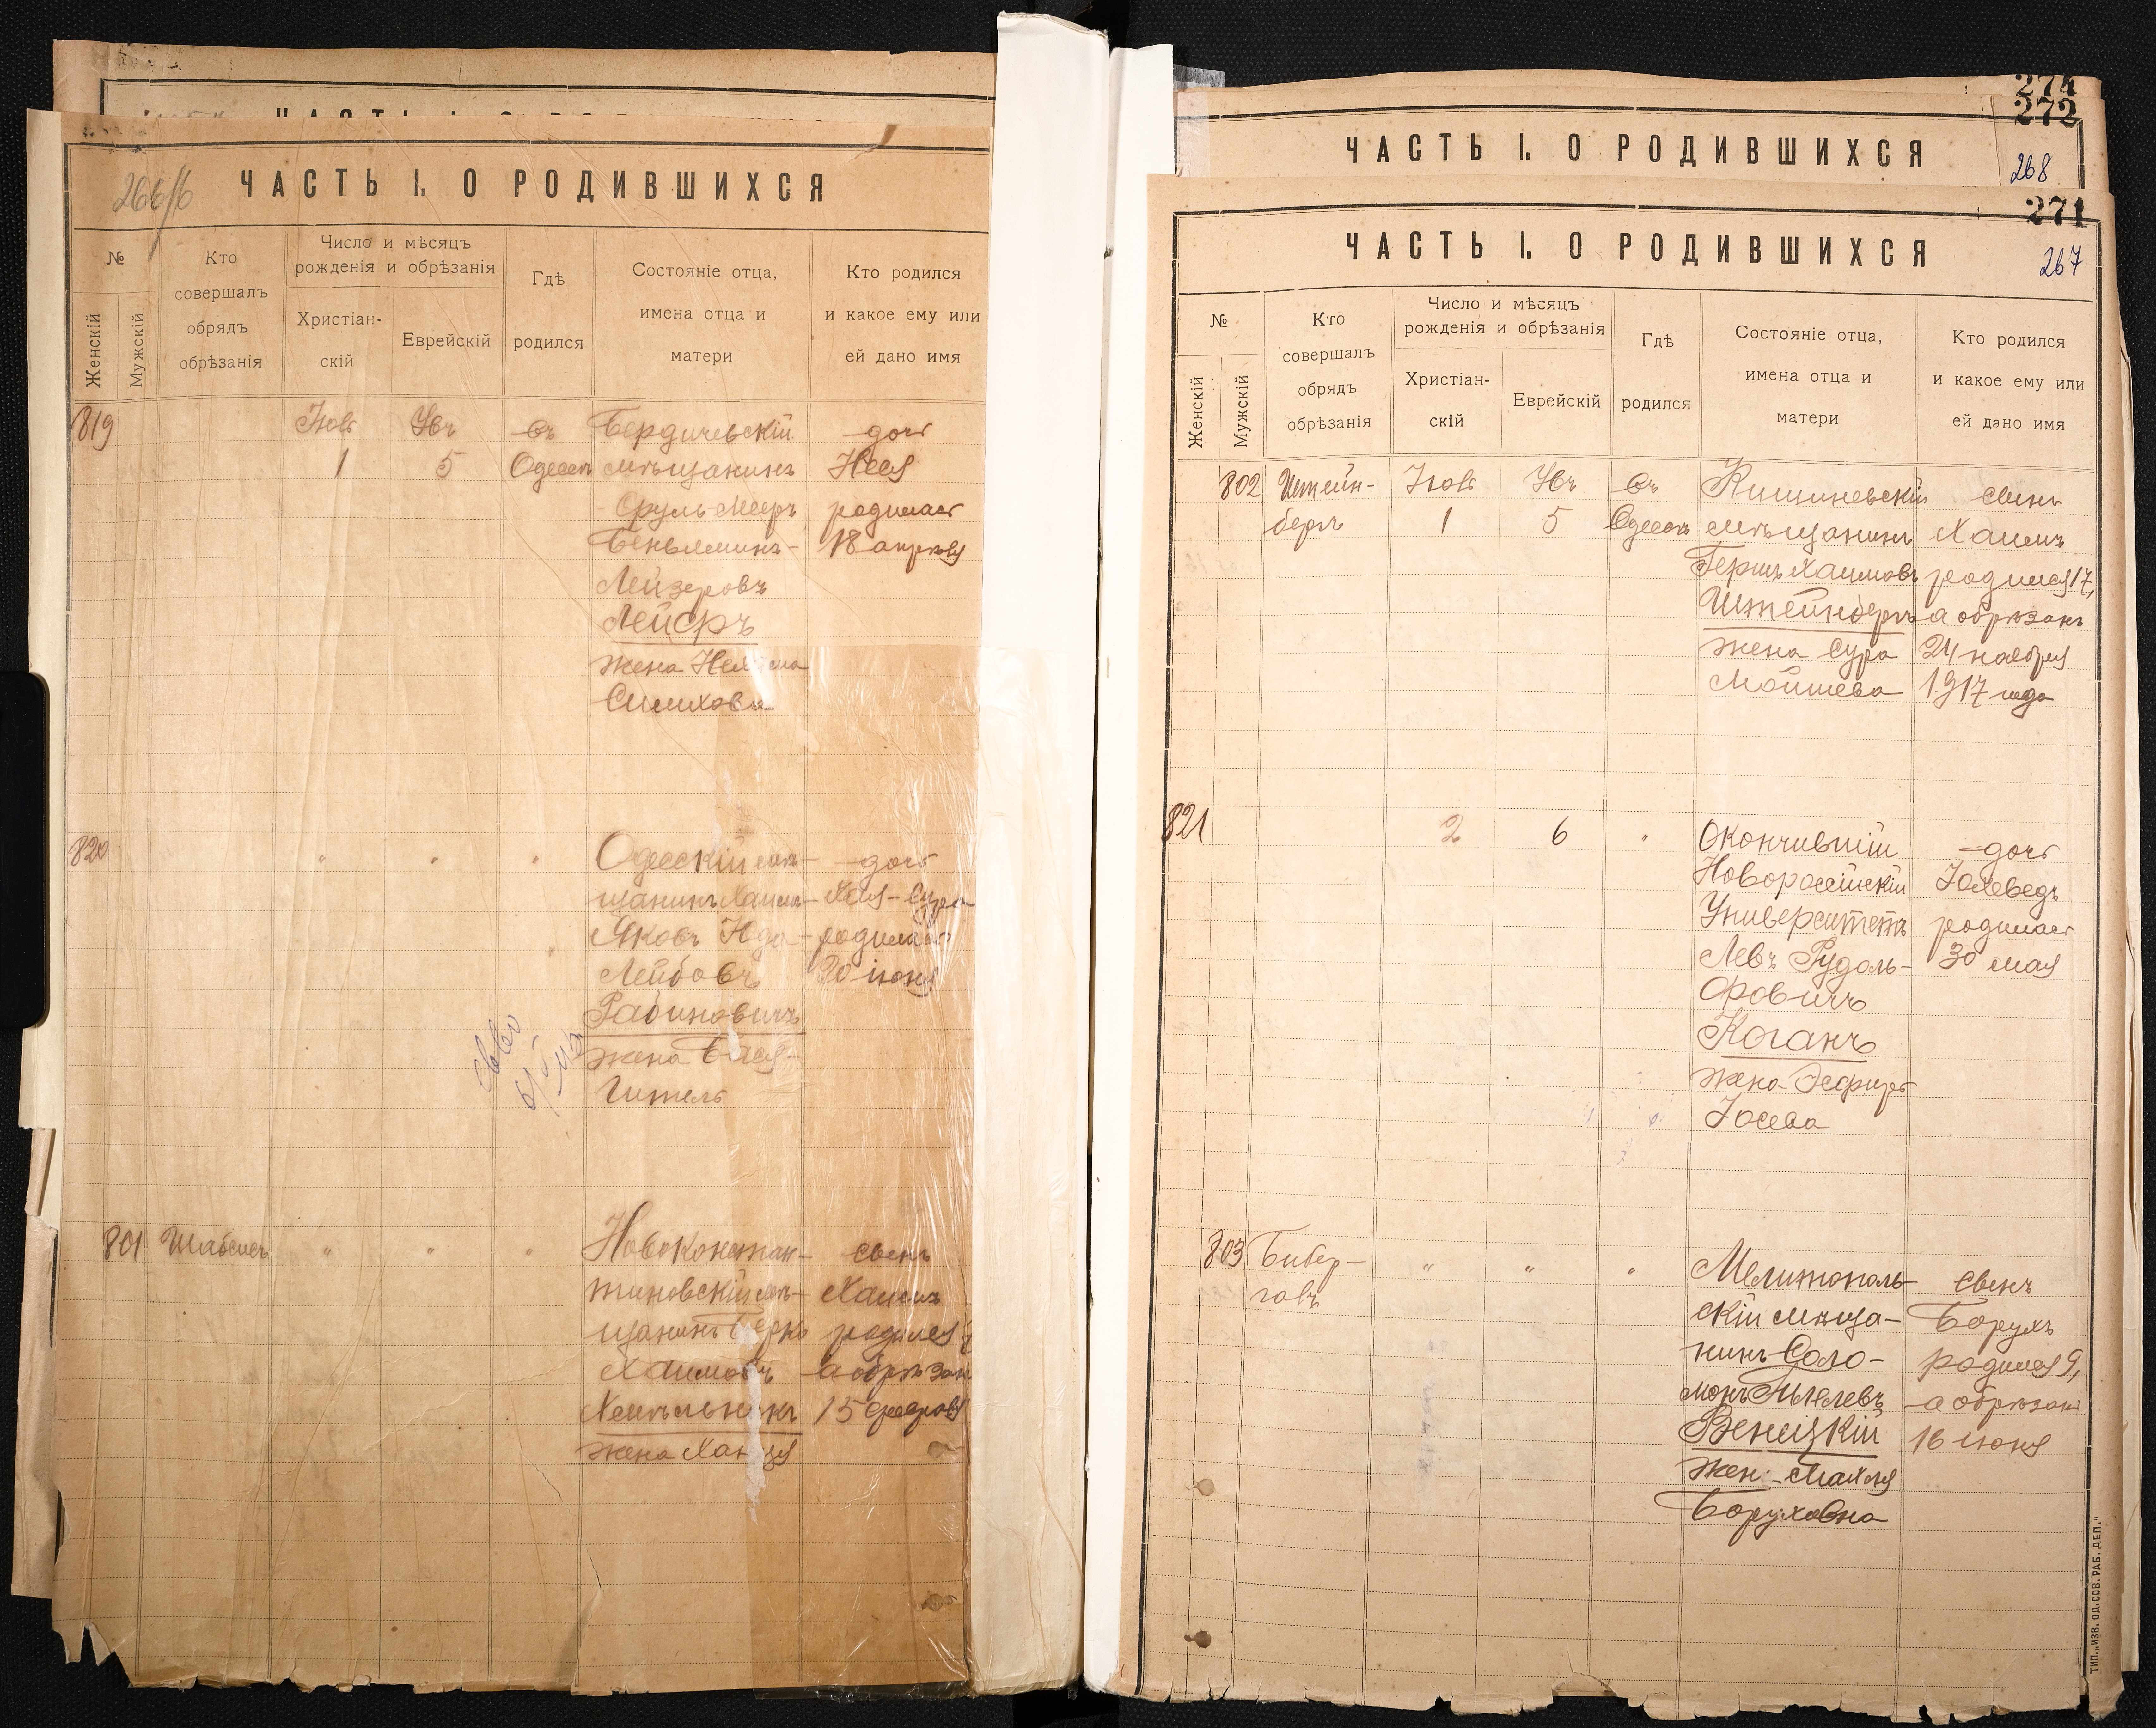 266/б
ЧАСТЬ I. О РОДИВШИХСЯ
№
Женскій
Мужскій
Кто
совершалъ
обрядъ
обрѣзанія
Число и мѣсяцъ
рожденія и обрѣзанія
Христіан-
скій
Еврейскій
Гдѣ
родился
Состояніе отца,
имена отца и
матери
Кто родился
и какое ему или
ей дано имя
819
1
5
въ
Одессѣ
Бердичевскій
мѣщанинъ
Сруль-Мееръ
Беньяминъ-
Лейзеровъ
жена
дочь
родилась
18 апрѣля
820
"
"
"
Одесскій мѣ-
щанинъ Хаимъ-
Яковъ
Лейбовъ
Рабиновичъ
жена Бася-
Гитель
дочь
Хая-Сура
родилась
20 іюня
801
"
"
"
Новоконстан-
тиновскій мѣ-
щанинъ Берко
Хаимовъ
Хмѣльникъ
жена
сынъ
Хаимъ
родился
а обрѣзан
15 февраля
274
272
ЧАСТЬ I. О РОДИВШИХСЯ
268
271
ЧАСТЬ I. О РОДИВШИХСЯ
267
№
Женскій
Мужскій
Кто
совершалъ
обрядъ
обрѣзанія
Число и мѣсяцъ
рожденія и обрѣзанія
Христіан-
скій
Еврейскій
Гдѣ
родился
Состояніе отца,
имена отца и
матери
Кто родился
и какое ему или
ей дано имя
802
Штейн-
бергъ
Іюль
1
5
въ
Одессѣ
Кишиневскій
мѣщанинъ
Гершъ Хаимовъ
Штейнбергъ
жена Сура
Мойшева
сынъ
Хаимъ
родился 17,
а обрѣзанъ
24 ноября
1917 года
821
2
6
"
Окончившій
Новороссійскій
Университетъ
Левъ Рудоль-
фовичъ
Коганъ
жена Эсфирь
Іосева
дочь
Іохеведъ
родилась
30 мая
803
Бибер-
галъ
"
"
"
Мелитополь-
скій мѣща-
нинъ Соло-
монъ
Венецкій
жен. Махля
Боруховна
сынъ
Борухъ
родился 9,
а обрѣзанъ
16 іюня
ТИП. „ИЗВ. ОД. СОВ. РАБ. ДЕП."